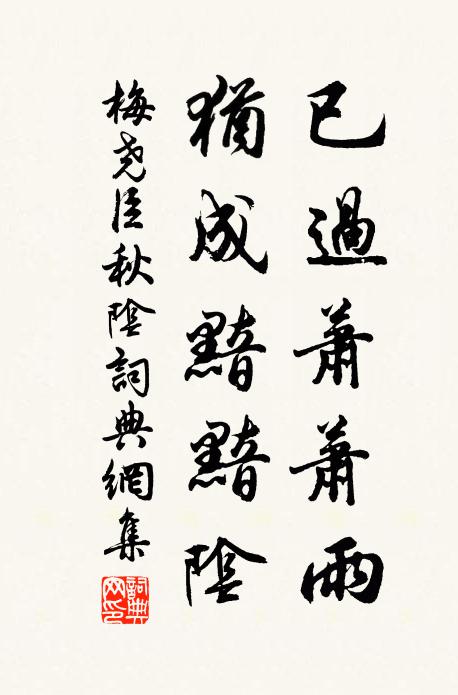 已過蕭蕭雨
猶成黯黯陰
梅堯臣秋陰詞典網集
詞典網印